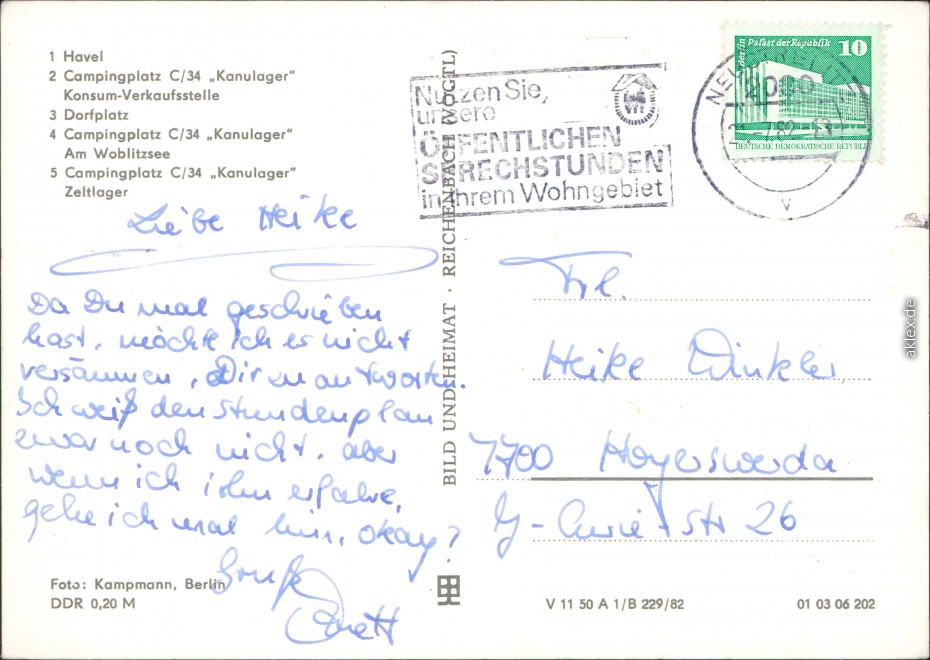 1 Havel
2 Campingplatz C/34 „Kanulager"
Konsum-Verkaufsstelle
3 Dorfplatz
4 Campingplatz C/34 „Kanulager"
Am Woblitzsee
5 Campingplatz C/34 „Kanulager"
Zeltlager
Liebe Heike
Da Du mal geschrieben
hast, möchte ich es nicht
versäumen, Dir zu antworten.
Ich weiß den Stundenplan
zwar noch nicht, aber
wenn ich ihn erfahre,
gehe ich mal hin, okay?
Gruß
Foto: Kampmann, Berlin
DDR 0,20 M
BILD UND HEIMAT · REICHENBACH (VOGTL)
Nutzen Sie,
unsere
ÖFFENTLICHEN
SPRECHSTUNDEN
in Ihrem Wohngebiet
Palast der Republik 10
DEUTSCHE DEMOKRATISCHE REPUBLIK
2080
Frl.
Heike Winkler
7700 Hoyerswerda
Curie-Str 26
V 11 50 A 1/B 229/82
01 03 06 202
aklex.de